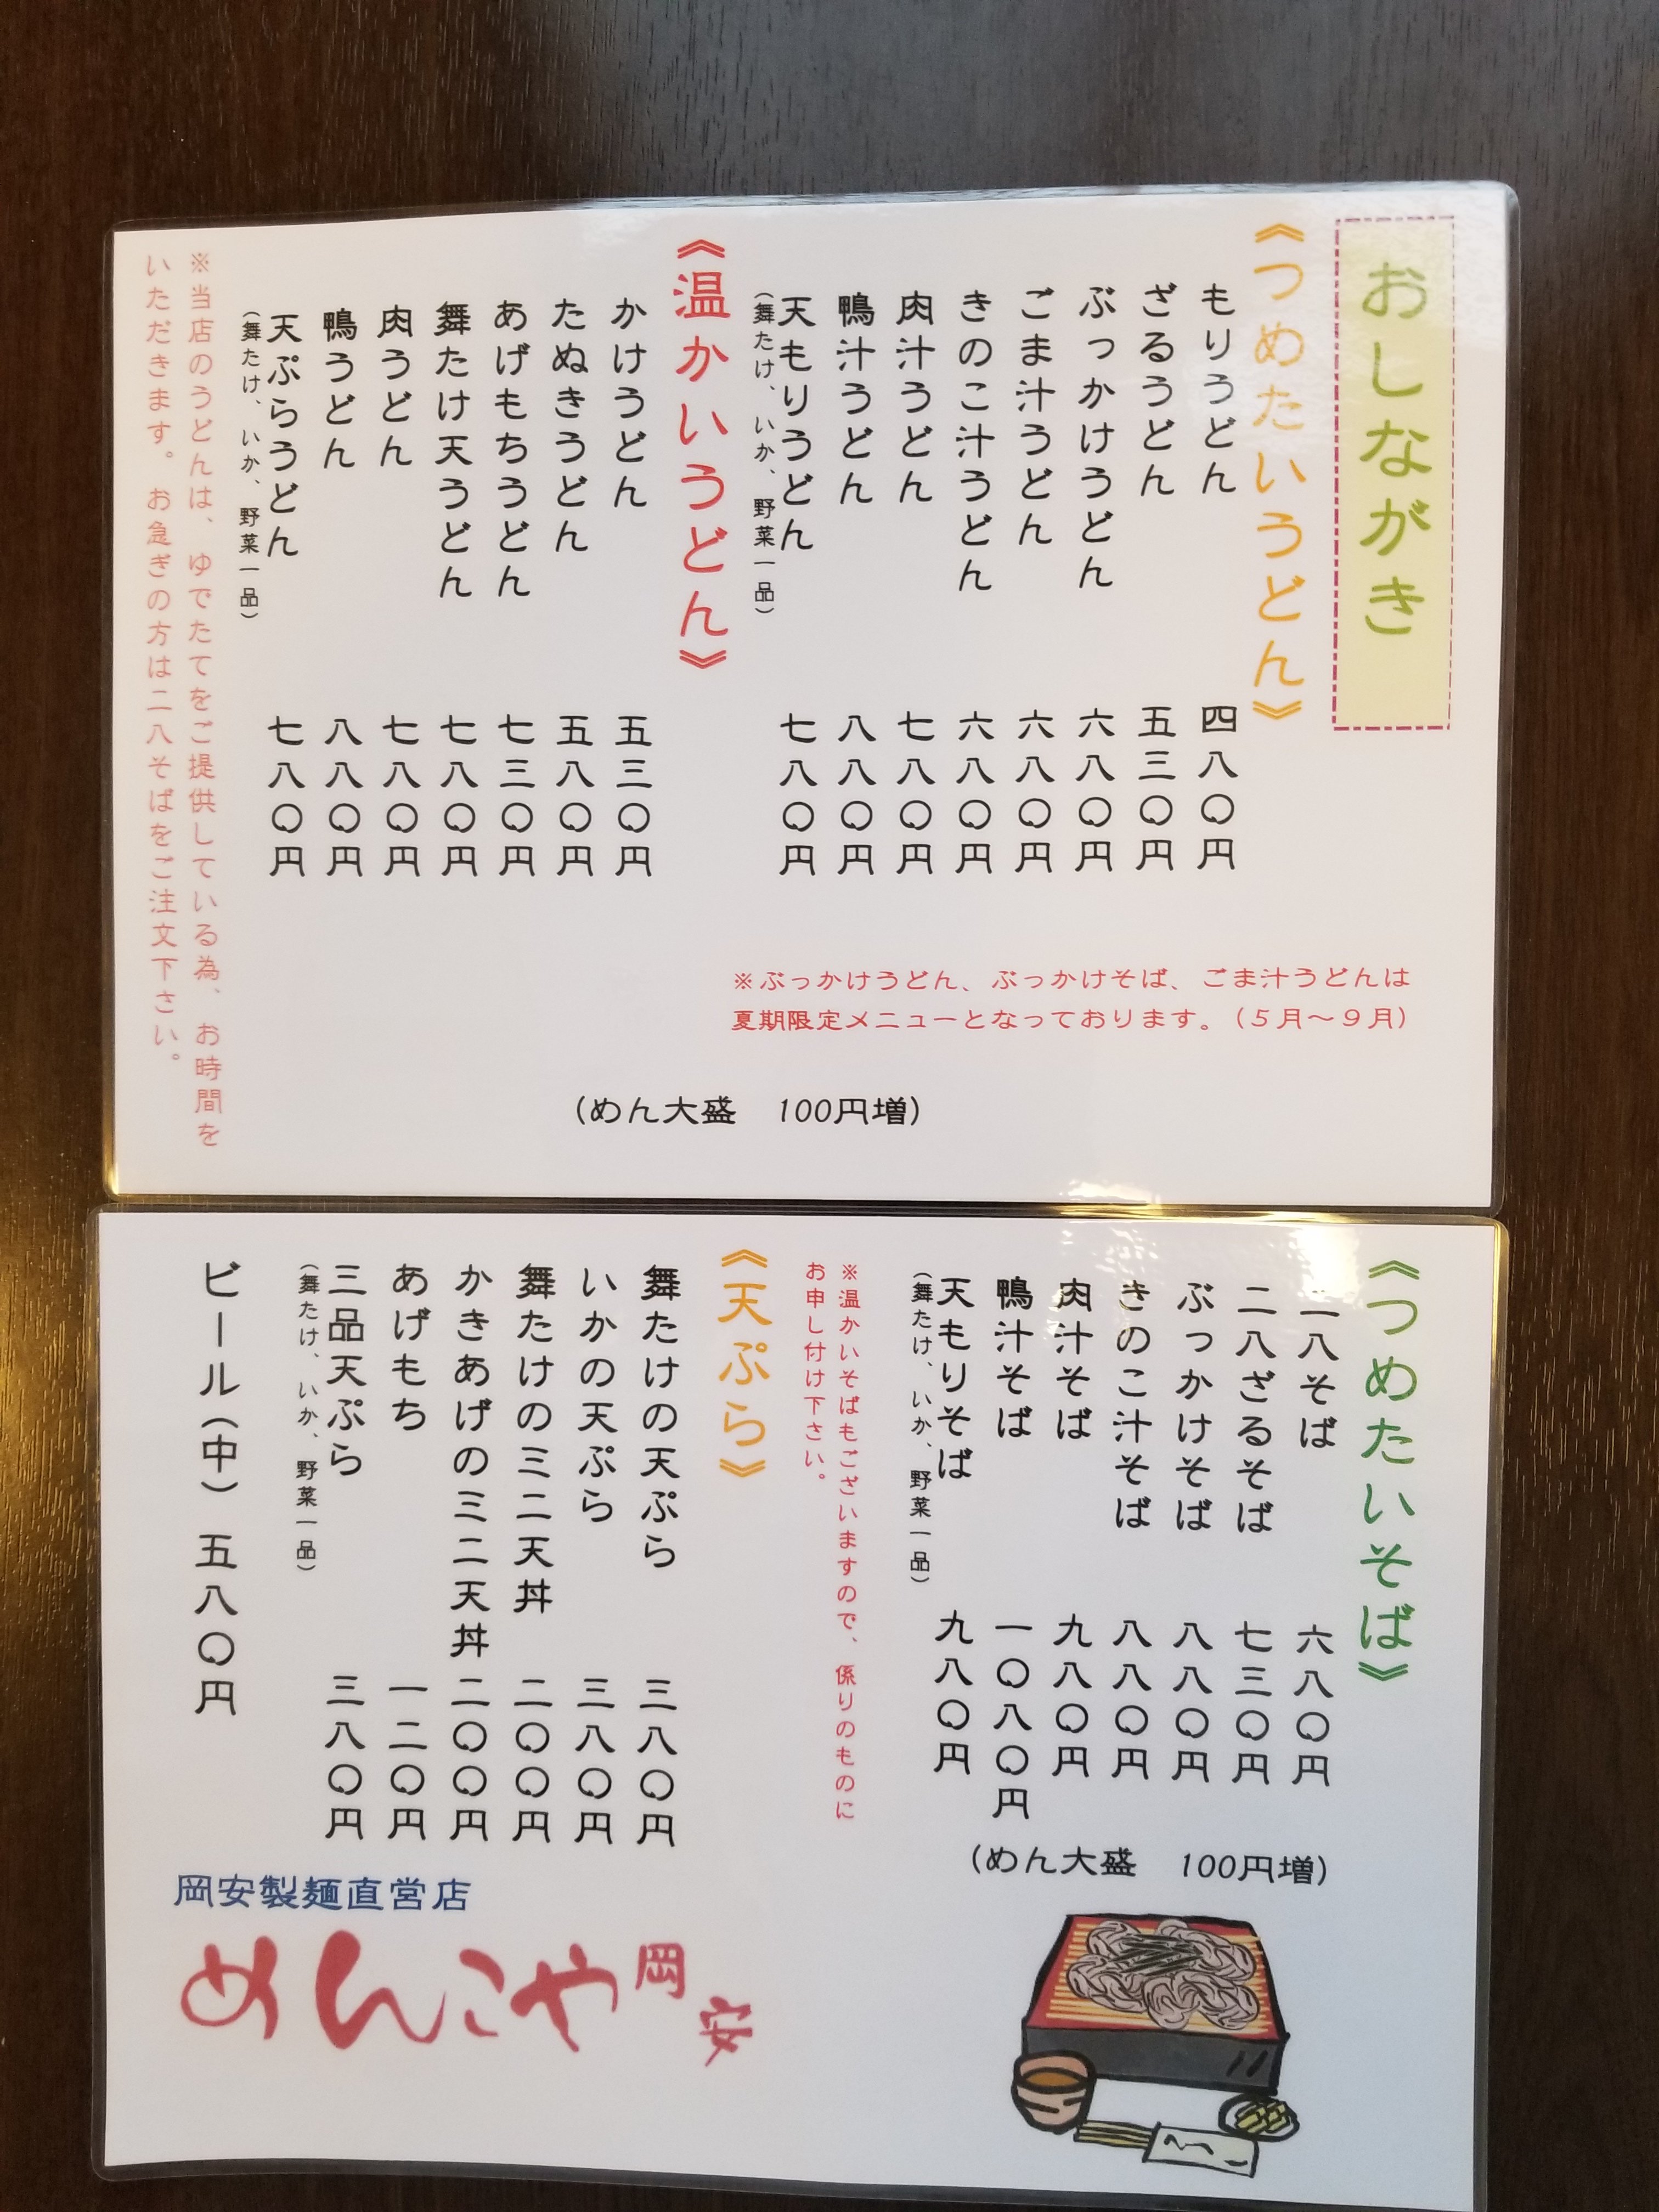 おしながき
《つめたいうどん》
もりうどん 四八〇円
ざるうどん 五三〇円
ぶっかけうどん 六八〇円
ごま汁うどん 六八〇円
きのこ汁うどん 六八〇円
肉汁うどん 七八〇円
鴨汁うどん 八八〇円
天もりうどん 七八〇円
(舞たけ、いか、野菜一品)
※ぶっかけうどん、ぶっかけそば、ごま汁うどんは
夏期限定メニューとなっております。(5月～9月)
《温かいうどん》
かけうどん 五三〇円
たぬきうどん 五八〇円
あげもちうどん 七三〇円
舞たけ天うどん 七八〇円
肉うどん 七八〇円
鴨うどん 八八〇円
天ぷらうどん 七八〇円
(舞たけ、いか、野菜一品)
(めん大盛　100円増)
※当店のうどんは、ゆでたてをご提供している為、お時間を
いただきます。お急ぎの方は二八そばをご注文下さい。
《つめたいそば》
二八そば 六八〇円
二八ざるそば 七三〇円
ぶっかけそば 八八〇円
きのこ汁そば 八八〇円
肉汁そば 九八〇円
鴨汁そば 一〇八〇円
天もりそば 九八〇円
(舞たけ、いか、野菜一品)
(めん大盛　100円増)
※温かいそばもございますので、係りのものに
お申し付け下さい。
《天ぷら》
舞たけの天ぷら 三八〇円
いかの天ぷら 三八〇円
舞たけのミニ天丼 二〇〇円
かきあげのミニ天丼 二〇〇円
あげもち 一二〇円
三品天ぷら 三八〇円
(舞たけ、いか、野菜一品)
ビール(中) 五八〇円
岡安製麺直営店
めんこや岡安